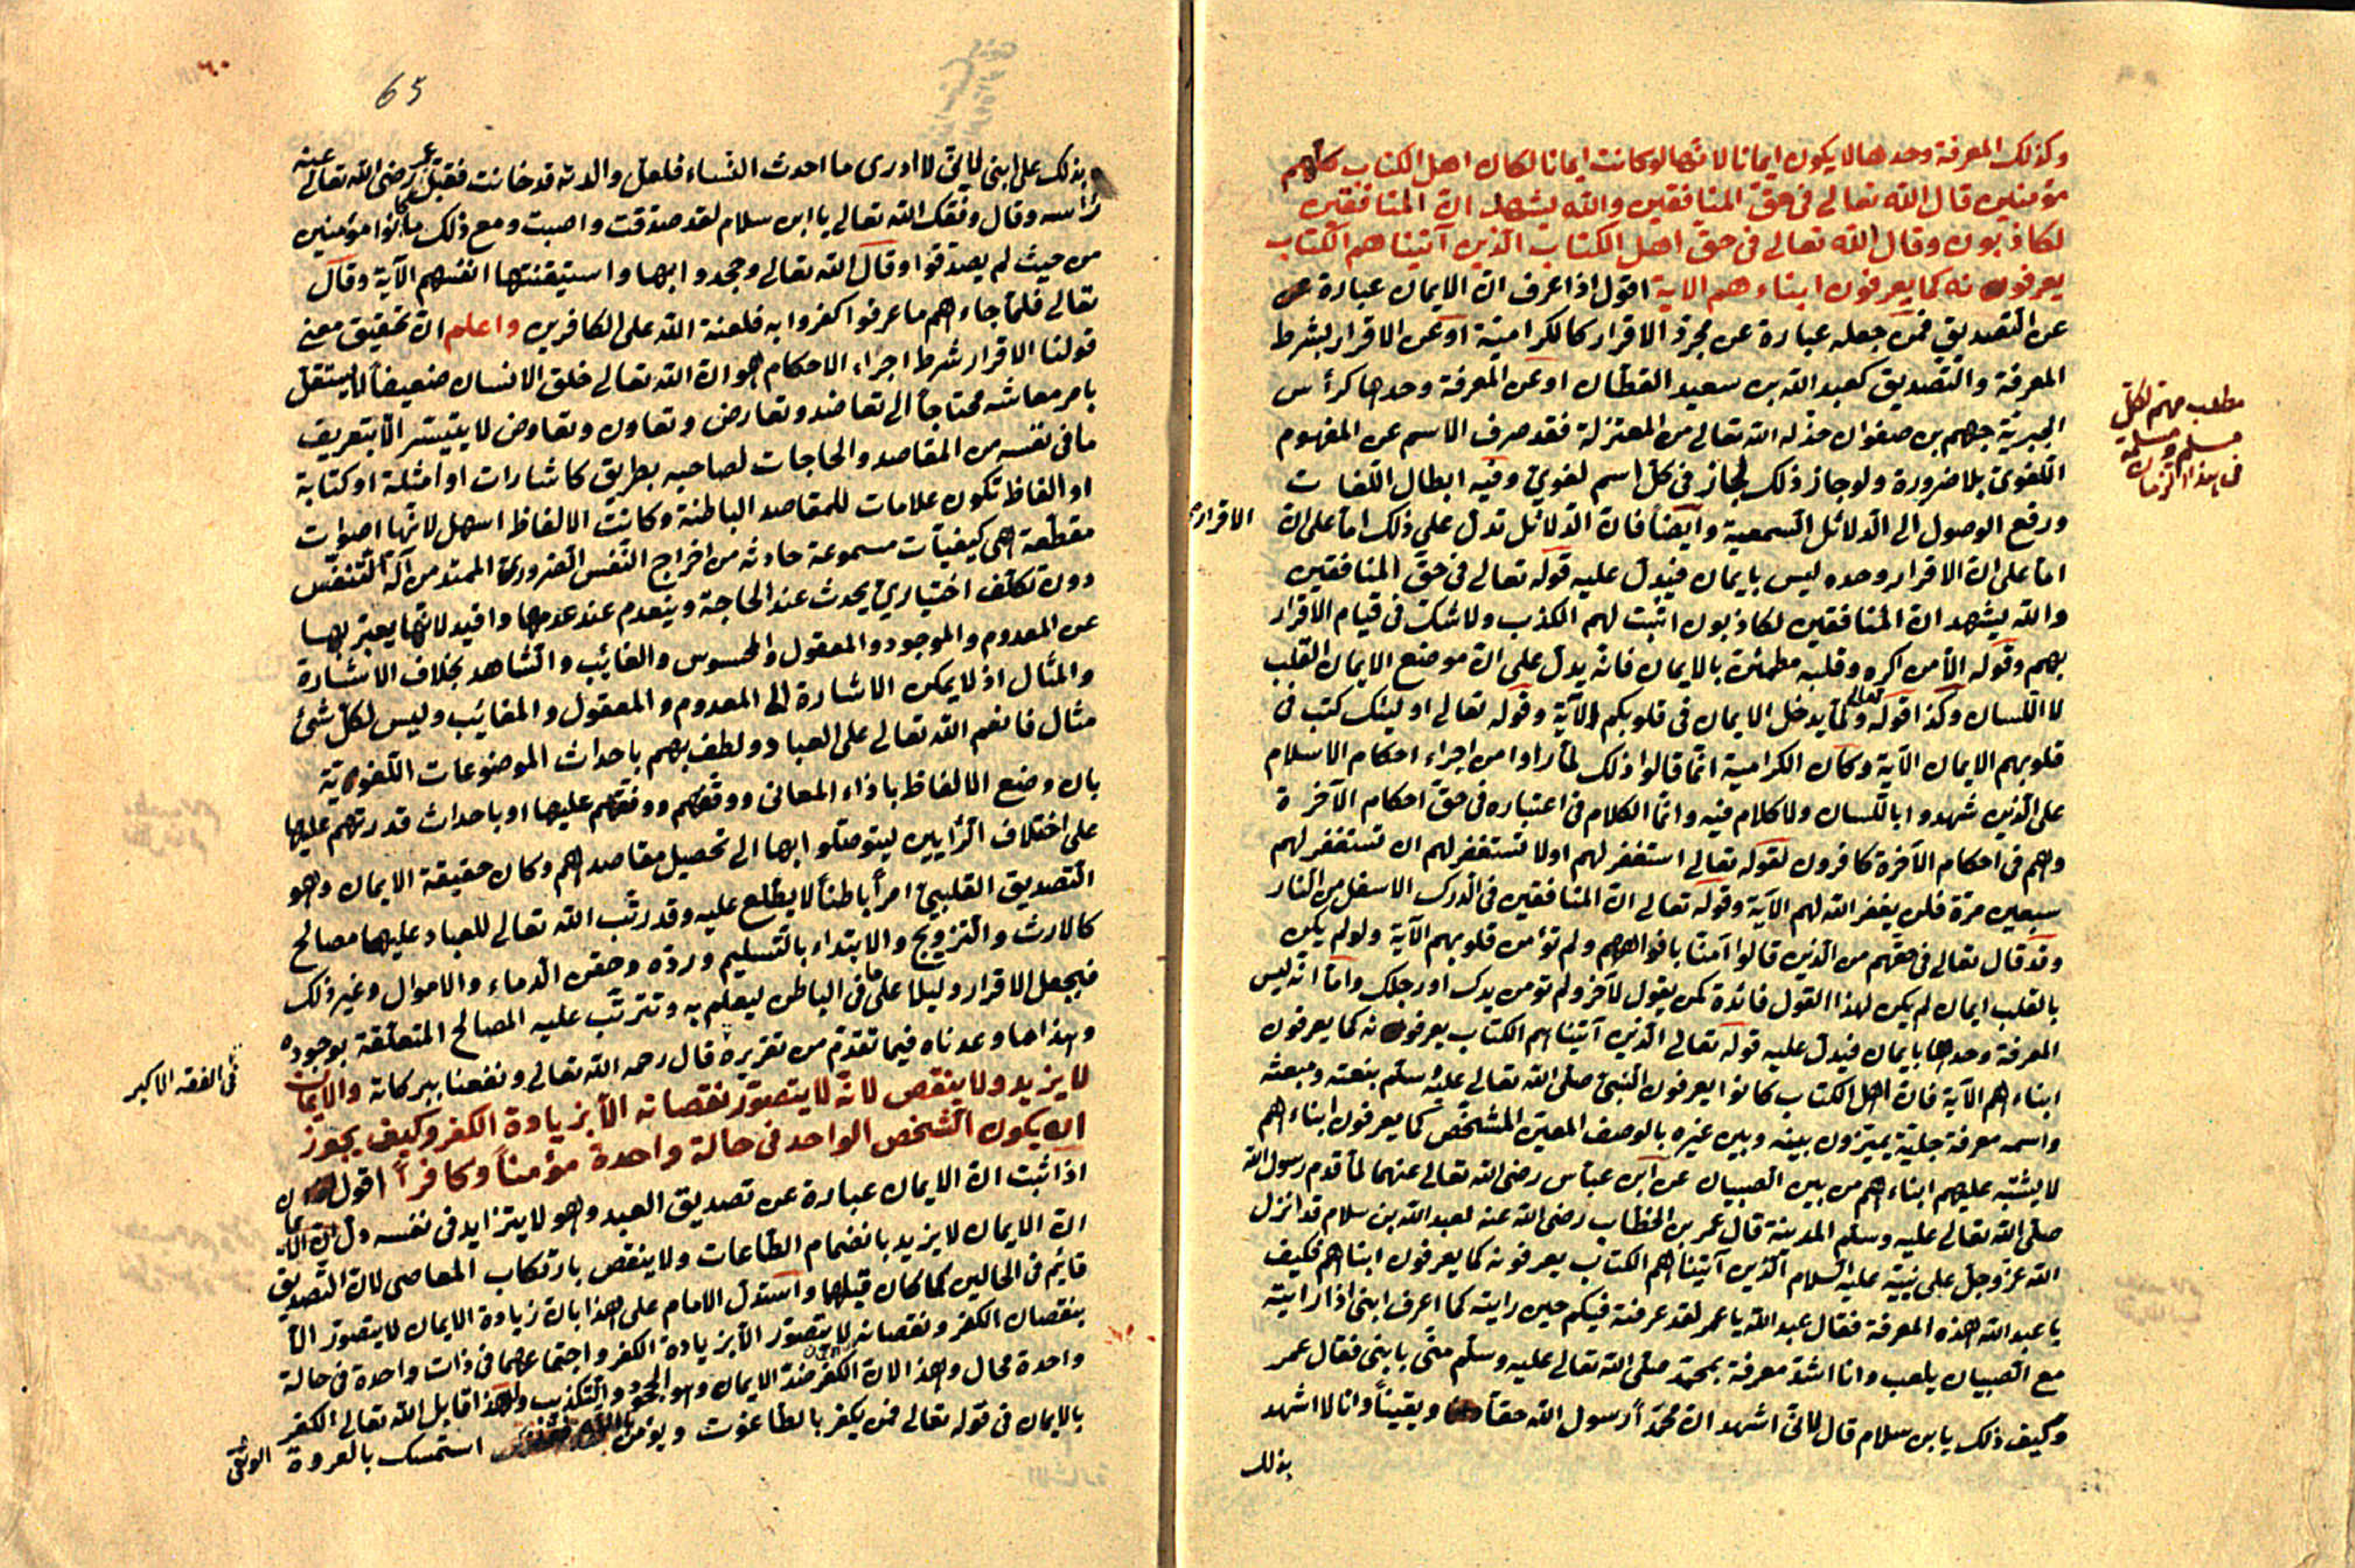 وكذلك المعرفة وحدها لا يكون ايمانا لانها لو كانت ايمانا لكان اهل الكتاب كلهم
مؤمنين قال الله تعالى في حق المنافقين والله يشهد ان المنافقين
لكاذبون وقال الله تعالى في حق اهل الكتاب الذين آتيناهم الكتاب
يعرفونه كما يعرفون ابناءهم الاية اقول اذا عرف ان الايمان عبارة عن
عن التصديق فمن جعله عبارة عن مجرد الاقرار كالكرامية او عن الاقرار بشرط
المعرفة والتصديق كعبد الله بن سعيد القطان او عن المعرفة وحدها كرأس
الجبرية جهم بن صفوان خذله الله تعالى من المعتزلة فقد صرف الاسم عن المفهوم
اللغوي بلا ضرورة ولو جاز ذلك لجاز في كل اسم لغوي وفيه ابطال اللغات
ورفع الوصول الى الدلائل السمعية وايضا فان الدلائل تدل على ذلك اما على ان
الاقرار
اما على ان الاقرار وحده ليس بايمان فيدل عليه قوله تعالى في حق المنافقين
والله يشهد ان المنافقين لكاذبون اثبت لهم الكذب ولا شك في قيام الاقرار
بهم وقوله الا من اكره وقلبه مطمئن بالايمان فانه يدل على ان موضع الايمان القلب
لا اللسان وكذا قوله تعالى ولما يدخل الايمان في قلوبكم الآية وقوله تعالى اولئك كتب في
قلوبهم الايمان الآية وكأن الكرامية انما قالوا ذلك لما رأوا من اجراء احكام الاسلام
على الذين شهدوا باللسان ولا كلام فيه وانما الكلام في اعتباره في حق احكام الآخرة
وهم في احكام الآخرة كافرون لقوله تعالى استغفر لهم اولا تستغفر لهم ان تستغفر لهم
سبعين مرة فلن يغفر الله لهم الآية وقوله تعالى ان المنافقين في الدرك الاسفل من النار
وقد قال تعالى في حقهم من الذين قالوا آمنا بافواههم ولم تؤمن قلوبهم الآية ولو لم يكن
بالقلب ايمان لم يكن لهذا القول فائدة كمن يقول لآخر ولم تؤمن يدك او رجلك واما انه ليس
المعرفة وحدها بايمان فيدل عليه قوله تعالى الذين آتيناهم الكتاب يعرفونه كما يعرفون
ابناءهم الآية فان اهل الكتاب كانوا يعرفون النبي صلى الله تعالى عليه وسلم بنعته ومبعثه
واسمه معرفة جلية يميزون بينه وبين غيره بالوصف المعين المشخص كما يعرفون ابناءهم
لا يشتبه عليهم ابناءهم من بين الصبيان عن ابن عباس رضى الله تعالى عنهما لما قدم رسول الله
صلى الله تعالى عليه وسلم المدينة قال عمر بن الخطاب رضى الله عنه لعبد الله بن سلام قد انزل
الله عز وجل على نبيه عليه السلام الذين آتيناهم الكتاب يعرفونه كما يعرفون ابناهم فكيف
يا عبد الله هذه المعرفة فقال عبد الله يا عمر لقد عرفته فيكم حين رايته كما اعرف ابنى اذا رايته
مع الصبيان يلعب وانا اشد معرفة بمحمد صلى الله تعالى عليه وسلم منى بابنى فقال عمر
وكيف ذلك يا بن سلام قال لانى اشهد ان محمدا رسول الله حقا ويقينا وانا لا اشهد
بذلك
مطلب مهم لكل
مسلم ومسلمة
في هذا الزمان
65
٦٠
بذلك على ابنى لانى لا ادرى ما احدث النساء فلعل والدته قد خانت فقبل عمر رضى الله تعالى عنه
رأسه وقال وفقك الله تعالى يا ابن سلام لقد صدقت واصبت ومع ذلك ما كانوا مؤمنين
من حيث لم يصدقوا وقال الله تعالى وجحدوا بها واستيقنتها انفسهم الآية وقال
تعالى فلما جاءهم ما عرفوا كفروا به فلعنة الله على الكافرين واعلم ان تحقيق معنى
قولنا الاقرار شرط اجراء الاحكام هو ان الله تعالى خلق الانسان ضعيفا لا يستقل
بامر معاشه محتاجا الى تعاضد وتعارض وتعاون وتعاوض لا يتيسر الا بتعريف
ما في نفسه من المقاصد والحاجات لصاحبه بطريق كاشارات او امثلة او كتابة
او الفاظ تكون علامات للمقاصد الباطنة وكانت الالفاظ اسهل لانها اصوات
مقطعة هى كيفيات مسموعة حادثة من اخراج النفس الضرورى الممتد من آلة التنفس
دون تكلف اختياري يحدث عند الحاجة وينعدم عند عدمها وافيد لانها يعبر بها
عن المعدوم والموجود والمعقول والمحسوس والغائب والشاهد بخلاف الاشارة
والمثال اذ لا يمكن الاشارة الى المعدوم والمعقول والمغائب وليس لكل شئ
مثال فانعم الله تعالى على العباد ولطف بهم باحداث الموضوعات اللغوية
بان وضع الالفاظ باذاء المعانى ووقفهم ووفقهم عليها او باحداث قدرتهم عليها
على اختلاف الرايين ليتوصلوا بها الى تحصيل مقاصدهم وكان حقيقة الايمان وهو
التصديق القلبي امرا باطنا لا يطلع عليه وقد رتب الله تعالى للعباد عليها مصالح
كالارث والتزويج والابتداء بالتسليم ورده وحقن الدماء والاموال وغير ذلك
فيجعل الاقرار دليلا على ما في الباطن ليعلم به وتترتب عليه المصالح المتعلقة بوجوده
وهذا ما وعدناه فيما تقدم من تقريره قال رحمه الله تعالى ونفعنا ببركاته والايمان
في الفقه الاكبر
لا يزيد ولا ينقص لانه لا يتصور نقصانه الا بزيادة الكفر وكيف يجوز
ان يكون الشخص الواحد في حالة واحدة مؤمنا وكافرا اقول
اذا ثبت ان الايمان عبارة عن تصديق العبد وهو لا يتزايد في نفسه دل
ان الايمان لا يزيد بانضمام الطاعات ولا ينقص بارتكاب المعاصى لان التصديق
قائم في الحالين كما كان قبلها واستدل الامام على هذا بان زيادة الايمان لا يتصور الا
بنقصان الكفر ونقصانه لا يتصور الا بزيادة الكفر واجتماعهما في ذات واحدة في حالة
واحدة محال وهذا لان الكفر ضد الايمان وهو الجحود والتكذيب ولهذا قابل الله تعالى الكفر
بالايمان في قوله تعالى فمن يكفر بالطاغوت ويؤمن بالله فقد استمسك بالعروة الوثقى